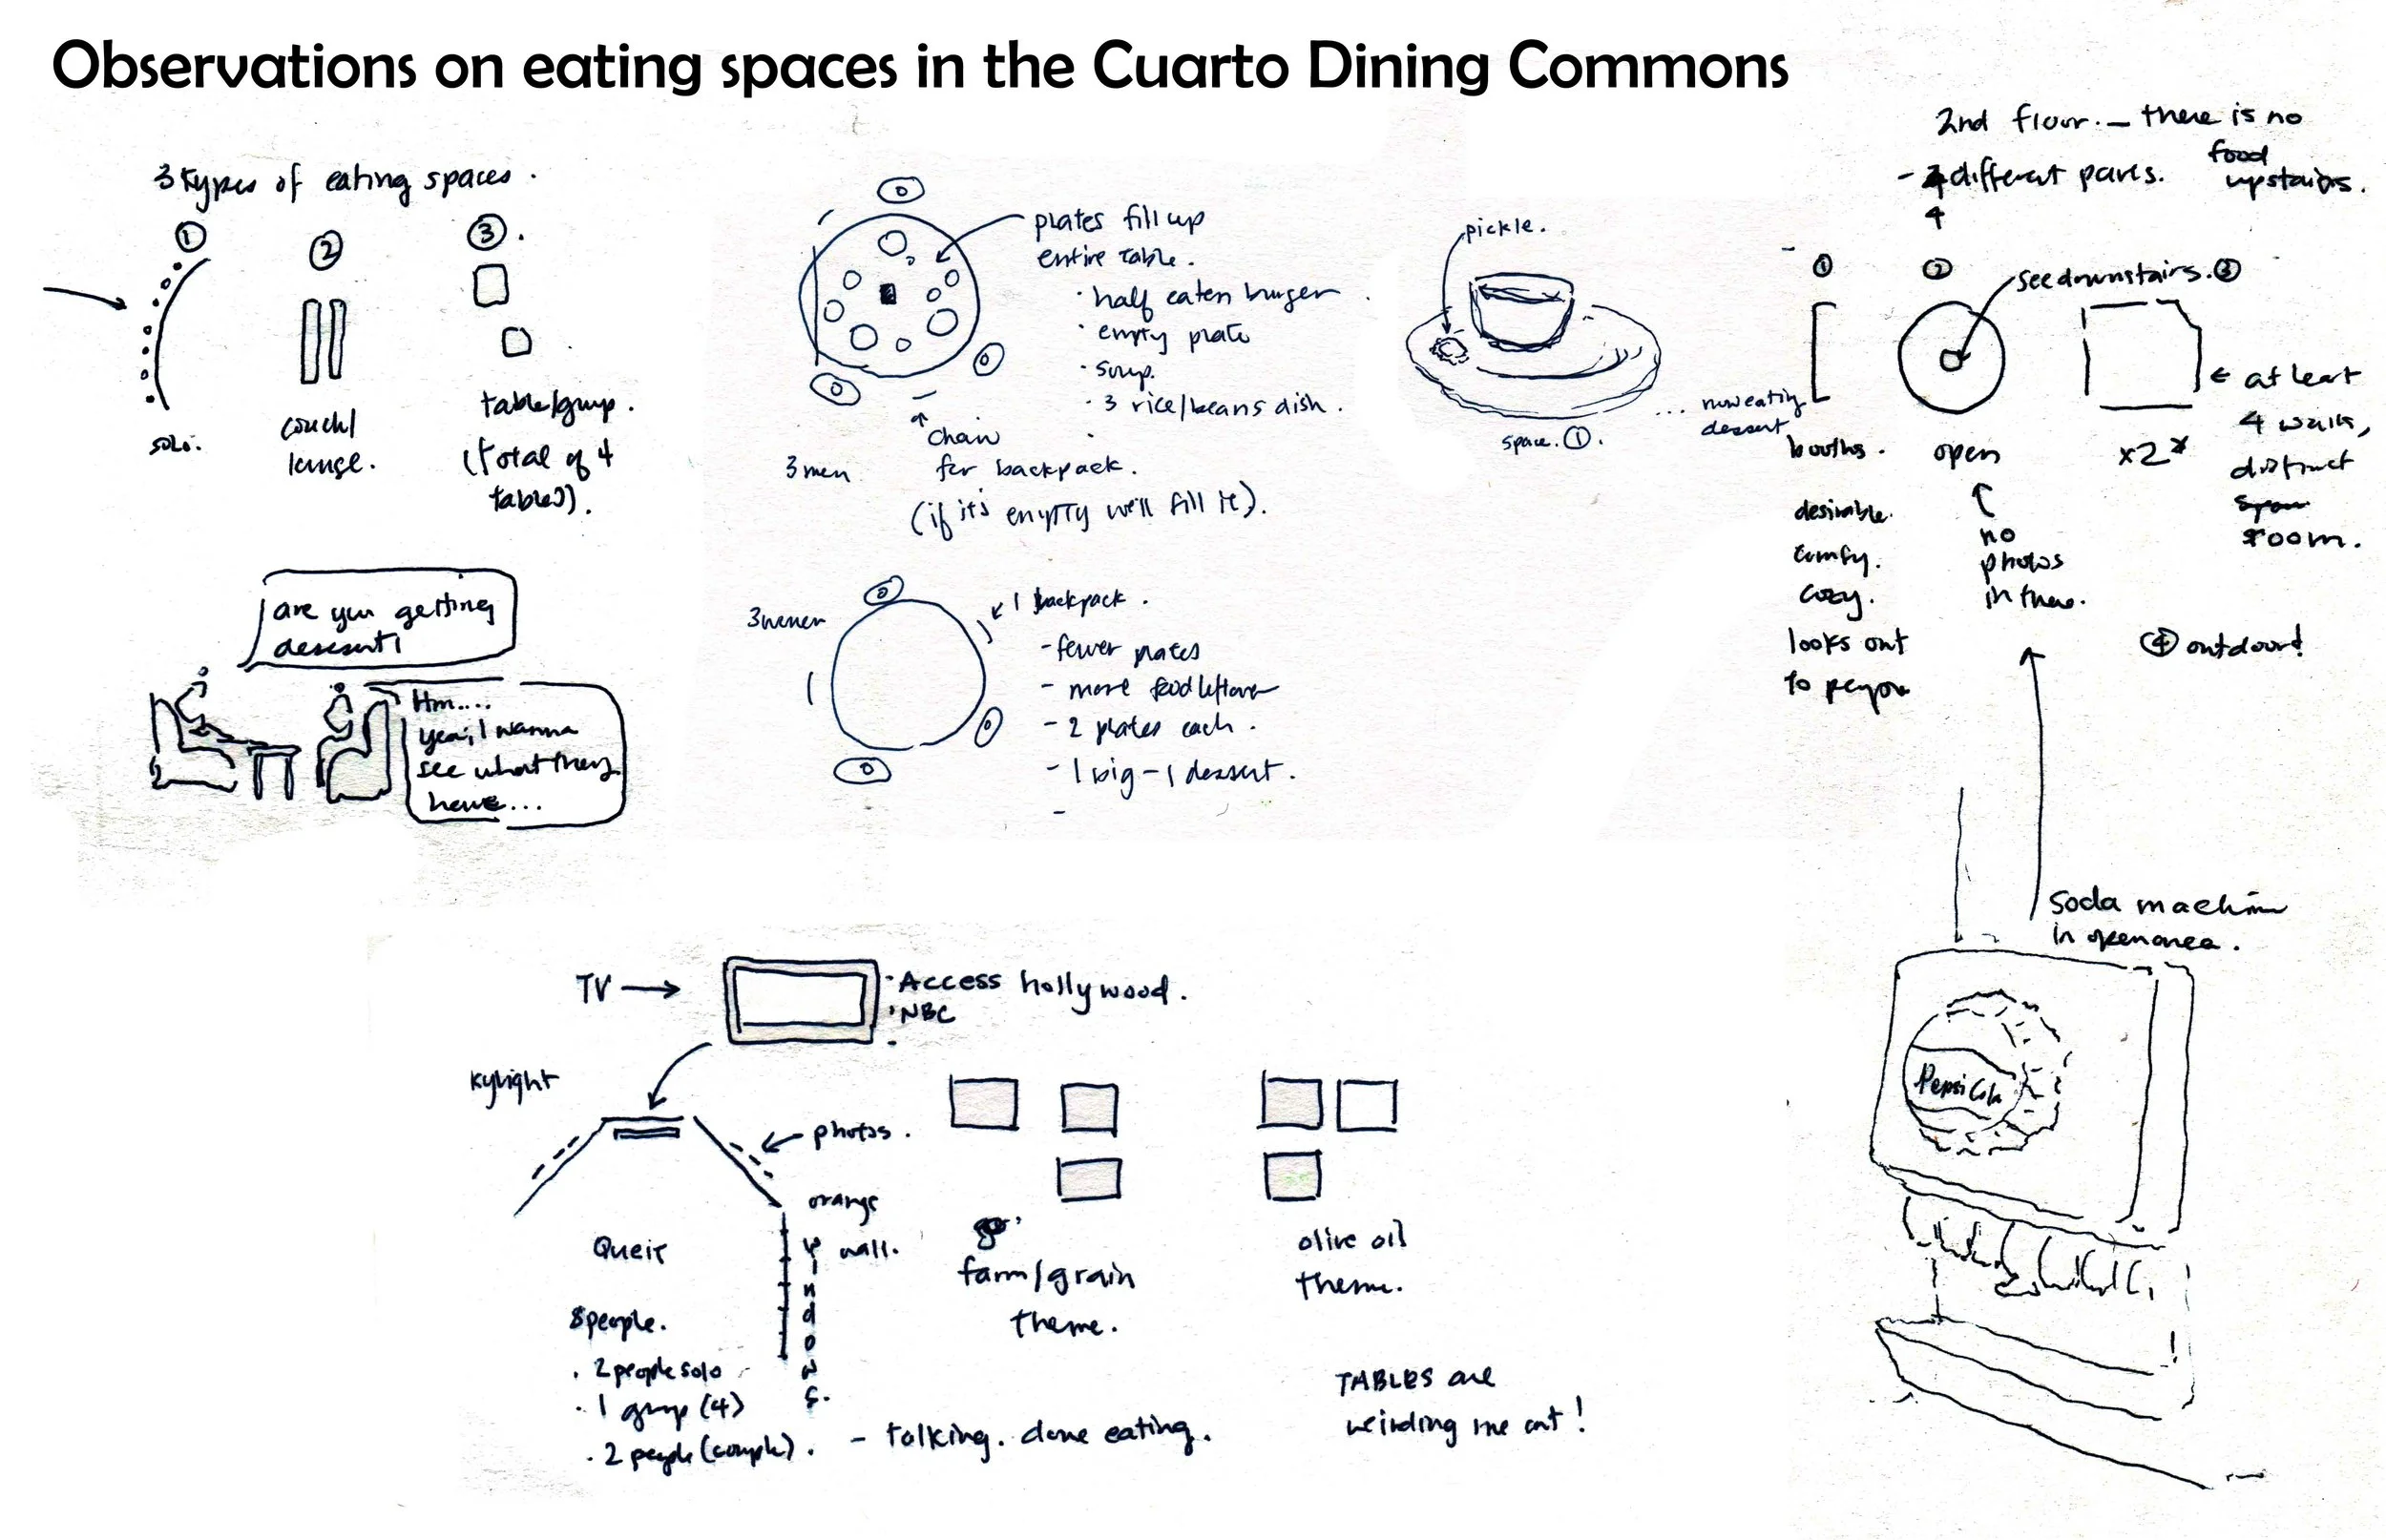 Observations on eating spaces in the Cuarto Dining Commons
3 types of eating spaces.
①
②
③.
solo.
couch/
lounge.
table/group.
(total of 4
tables).
are you getting
dessert?
Hm....
yea, I wanna
see what they
have...
plates fill up
entire table.
· half eaten burger
· empty plate
· soup.
· 3 rice/beans dish.
chair
for backpack.
(if it's empty we'll fill it).
3 men
3 women
1 backpack.
- fewer plates
- more food leftover
- 2 plates each.
- 1 big - 1 dessert.
pickle.
space. ①.
... now eating
dessert
2nd floor. — there is no
food
upstairs.
- different parts.
4
①
②
see downstairs.
③
booths.
desirable.
comfy.
cozy.
looks out
to
open
no
photos
in there.
x2
← at least
4 walls,
distinct
room.
④ outdoor!
soda machine
in open area.
Pepsi Cola
TV →
· Access hollywood.
· NBC
kylight
photos.
orange
wall.
windows.
Queit
8 people.
· 2 people solo
· 1 group (4)
· 2 people (couple).
- talking. done eating.
farm/grain
theme.
olive oil
theme.
TABLES are
weirding me out!